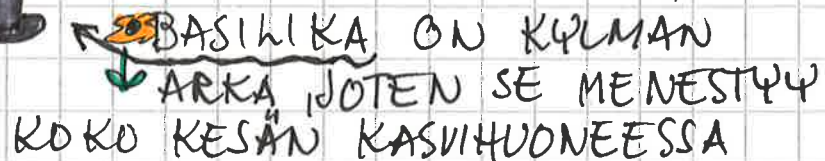 BASILIKA ON KYLMÄN
ARKA, JOTEN SE MENESTYY
KOKO KESÄN KASVIHUONEESSA